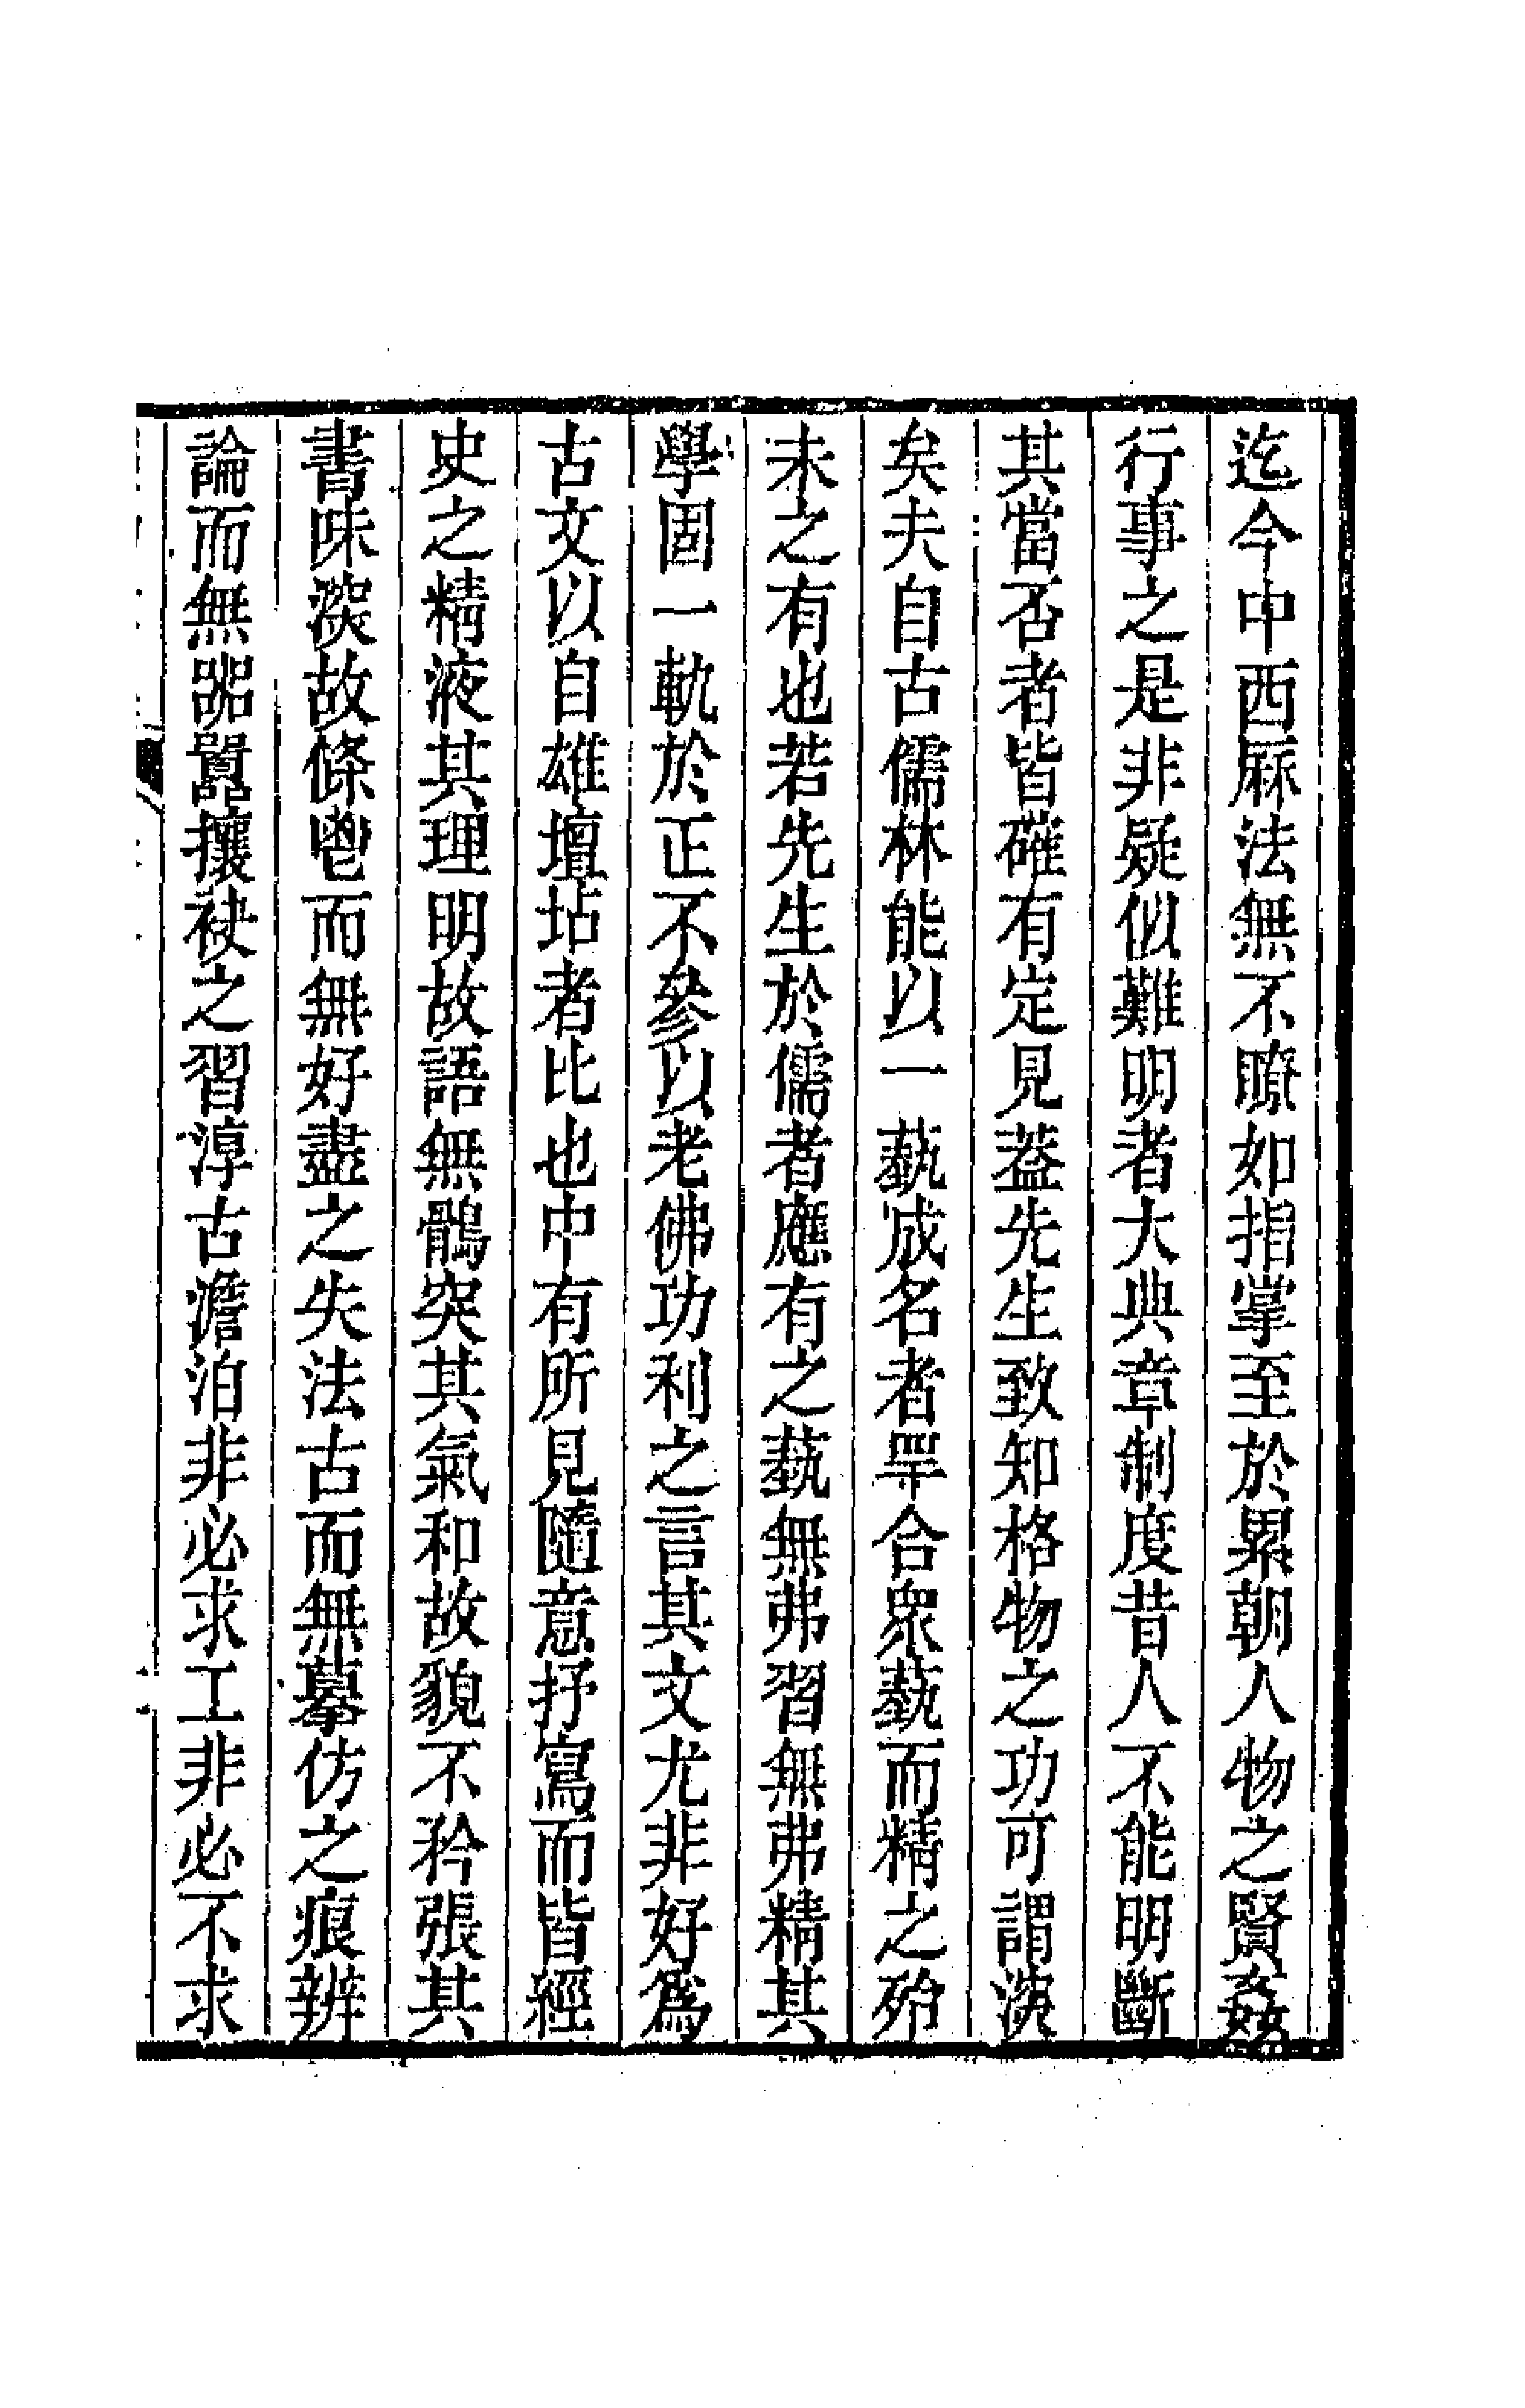 迄今中西厤法無不瞭如指掌至於累朝人物之賢姦
行事之是非疑似難明者大典章制度昔人不能明斷
其當否者皆確有定見葢先生致知格物之功可謂深
矣夫自古儒林能以一藝成名者罕合衆藝而精之殆
未之有也若先生於儒者應有之藝無弗習無弗精其
學固一軌於正不參以老佛功利之言其文尤非好爲
古文以自雄壇坫者比也中有所見隨意抒寫而皆經
史之精液其理明故語無鶻突其氣和故貌不矜張其
書味深故條鬯而無好盡之失法古而無摹仿之痕辨
論而無嚻囂攘袂之習淳古澹泊非必求工非必不求